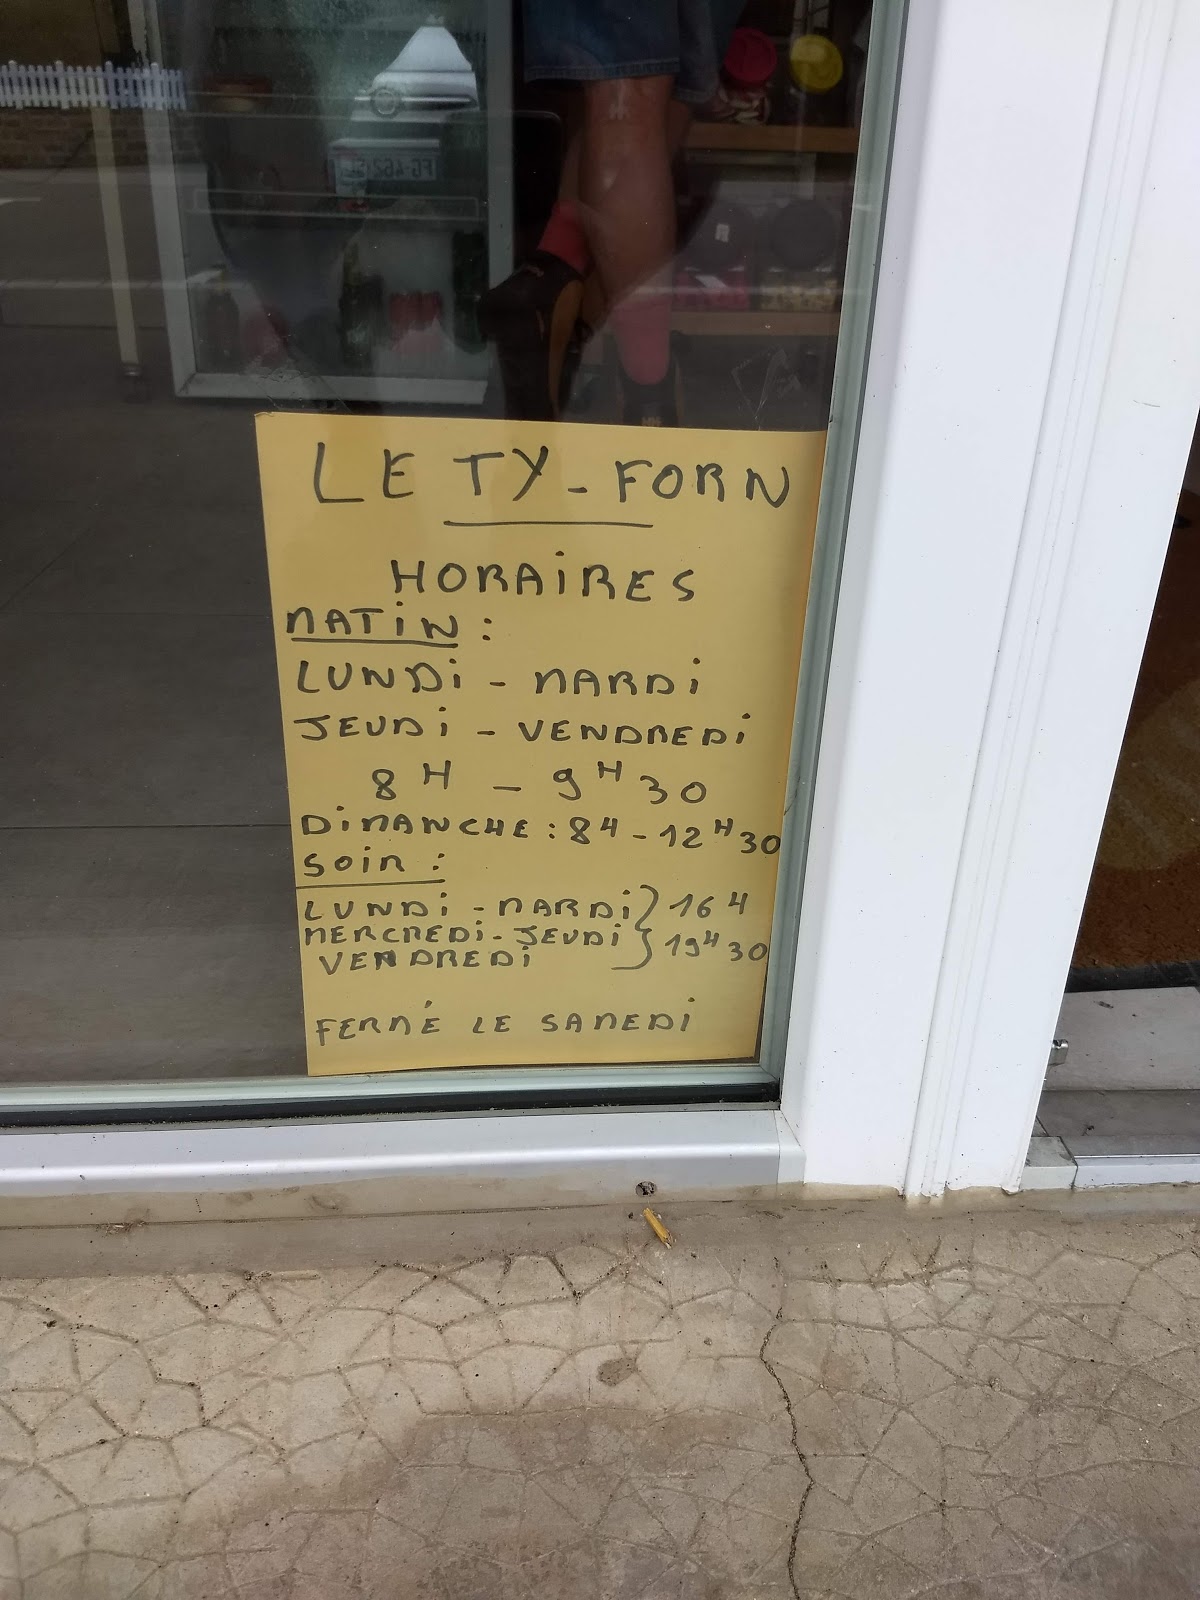 LE TY-FORN
HORAIRES
MATIN :
LUNDI - MARDI
JEUDI - VENDREDI
8H - 9H30
DIMANCHE : 8H - 12H30
SOIR :
LUNDI - MARDI } 16H
MERCREDI - JEUDI
VENDREDI } 19H30
FERMÉ LE SAMEDI